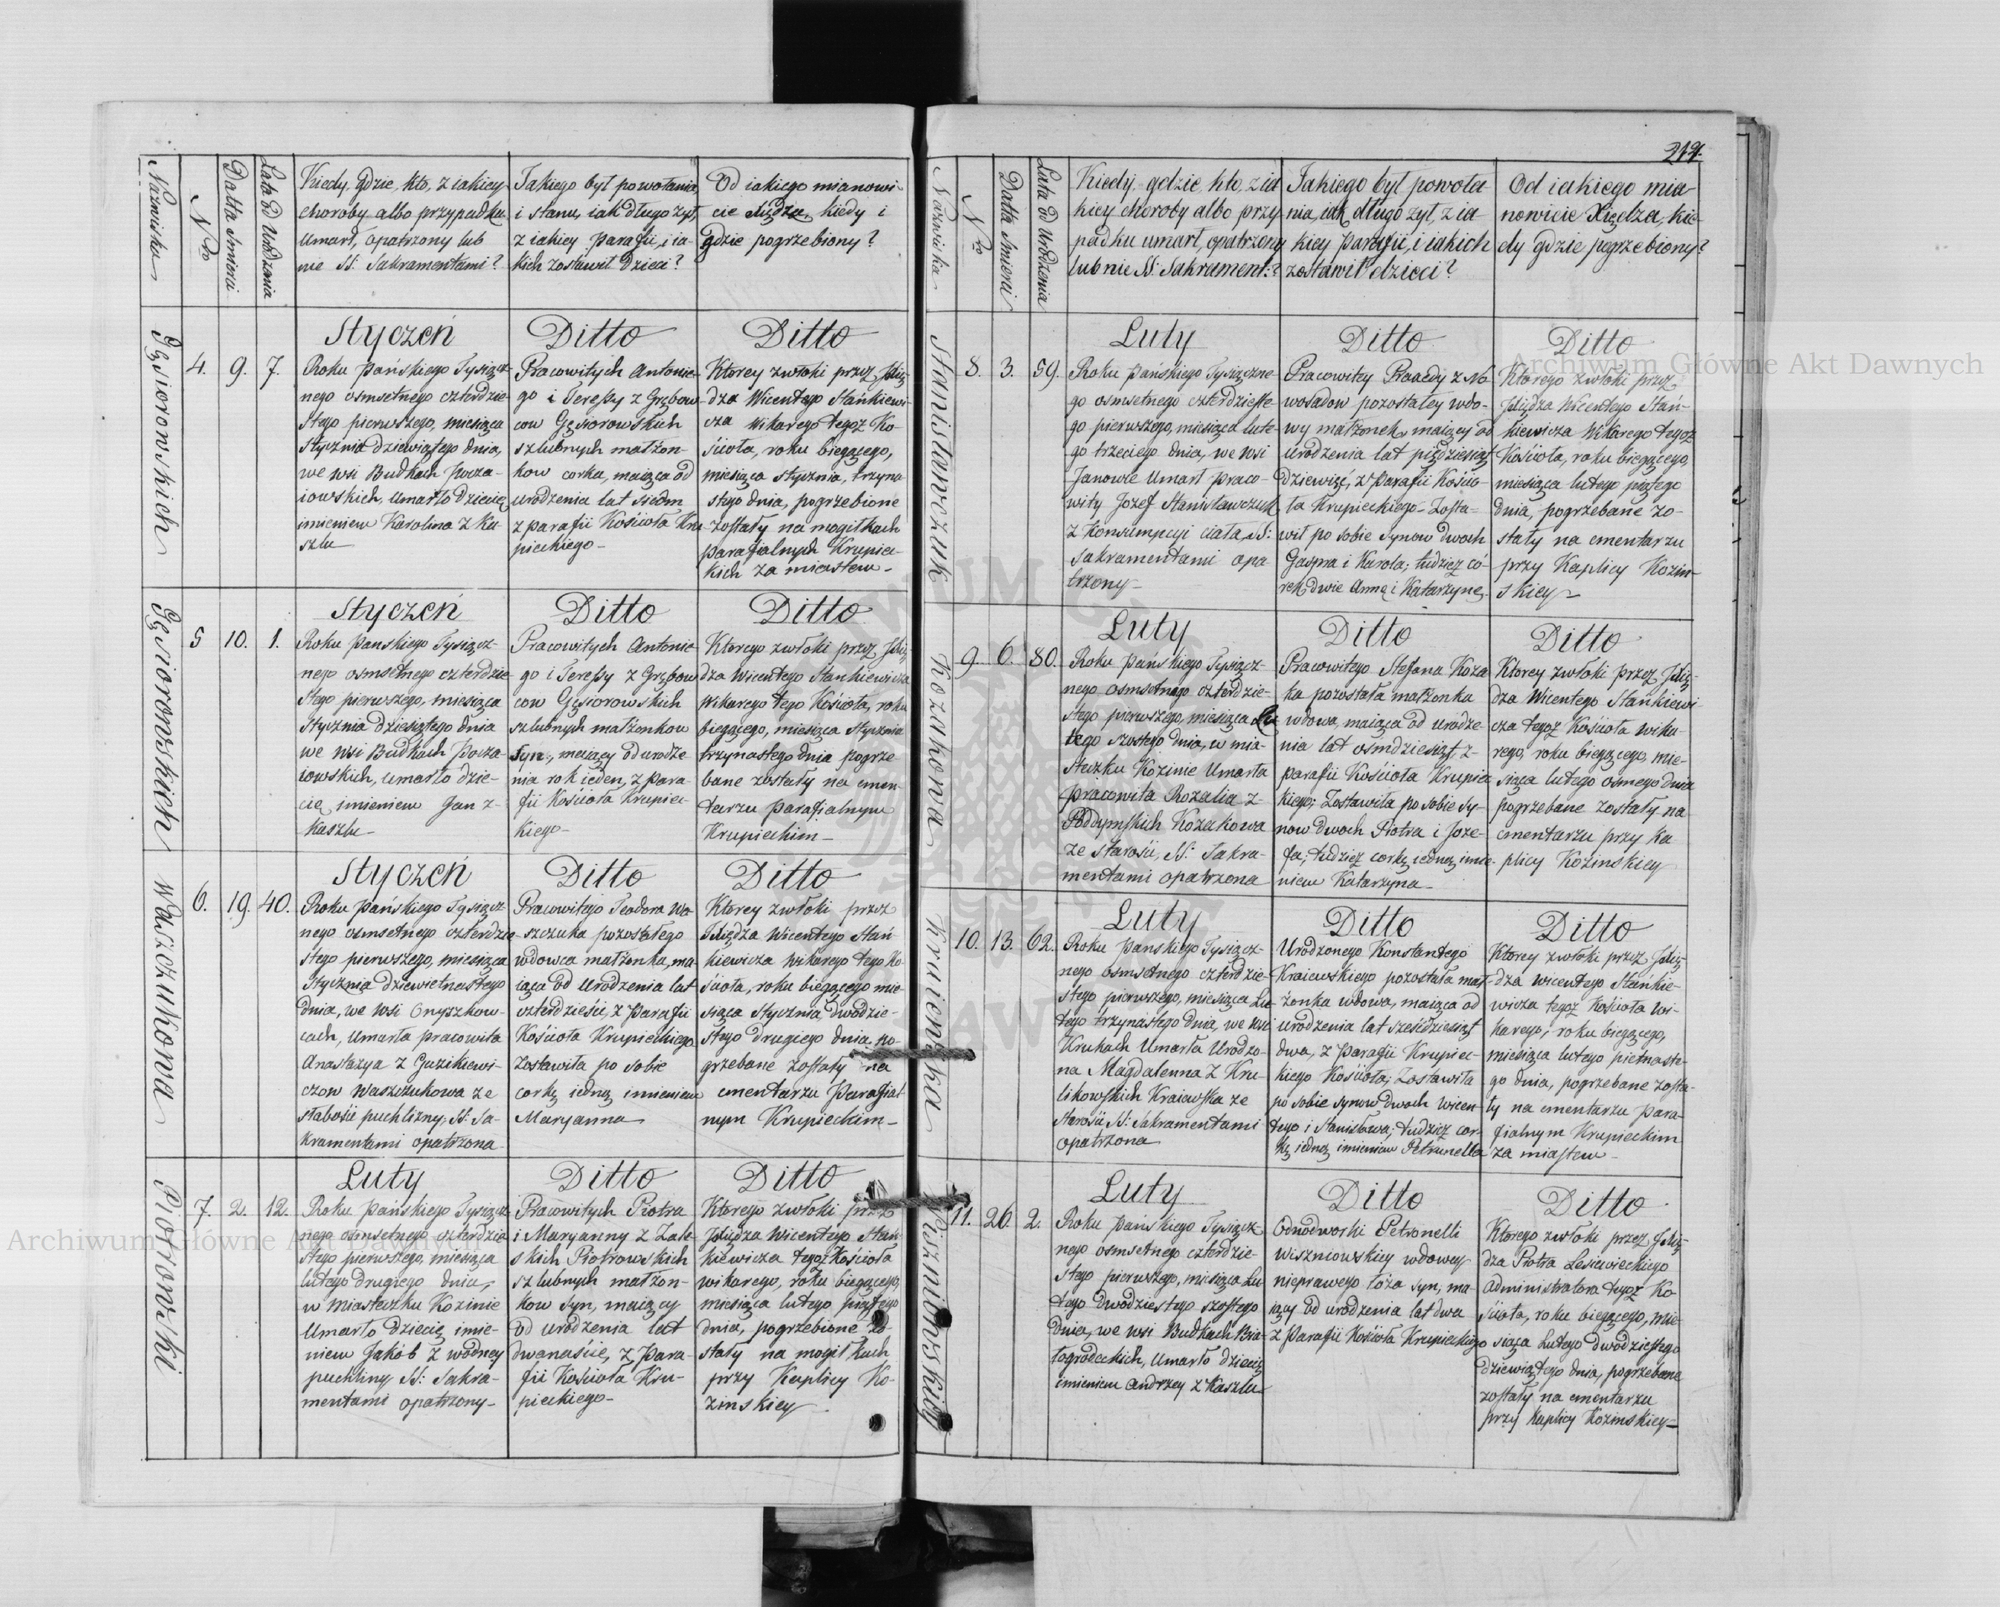 Nazwiska
Nro
Datta Śmierci
Lata od Urodzenia
Kiedy, gdzie, kto, z iakiey
choroby albo przypadku
umarł, opatrzony lub
nie SS: Sakramentami?
Jakiego był powołania
i stanu, iak długo żył,
z iakiey Parafii, i ia-
kich zostawił Dzieci?
Od iakiego mianowi-
cie Xiędza, kiedy i
gdzie pogrzebiony?
Gęsiorowskich
4. 9. 7.
Styczeń
Roku Pańskiego Tysiącz-
nego osmsetnego czterdzie-
stego pierwszego, miesiąca
stycznia dziewiątego dnia,
we wsi Budkach Pocza-
iowskich, umarło dziecię
imieniem Karolina z Ka-
szlu
Ditto
Pracowitych Antonie-
go i Teressy z Grębow-
cow Gęsiorowskich
szlubnych małżon-
kow corka, maiąca od
urodzenia lat siedm
z parafii Kościoła Kru-
pieckiego-
Ditto
Ktorey zwłoki przez Xię-
dza Wicentego Stańkiewi-
cza Wikarego tegoż Ko-
ścioła, roku biegącego,
miesiąca stycznia, trzyna-
stego dnia, pogrzebione
zostały na mogiłkach
parafialnych Krupiec-
kich za miastem-
Gęsiorowskich
5 10. 1.
Styczeń
Roku Pańskiego Tysiącz-
nego osmsetnego czterdzie-
stego pierwszego, miesiąca
Stycznia dziesiątego dnia
we wsi Budkach Pocza-
iowskich, umarło dzie-
cię imieniem Jan z-
Kaszlu
Ditto
Pracowitych Antonie-
go i Teressy z Grębow-
cow Gęsiorowskich
szlubnych małżonkow
Syn, maiący od urodze-
nia rok ieden, z Para-
fii Kościoła Krupiec-
kiego-
Ditto
Ktorego zwłoki przez Xię-
dza Wicentego Stankiewicza
Wikarego tego Kościoła, roku
biegącego, miesiąca Stycznia
trzynastego dnia pogrze-
bane zostały na cmen-
tarzu Parafialnym
Krupieckim-
Waszczukowa
6. 19. 40.
Styczeń
Roku Pańskiego Tysiącz-
nego osmsetnego czterdzie-
stego pierwszego, miesiąca
Stycznia dziewietnastego
dnia, we wsi Onyszkow-
cach, umarła pracowita
Anastazya z Guzikiewi-
czow Waszczukowa ze
słabości puchlizny, SS: Sa-
kramentami opatrzona
Ditto
Pracowitego Teodora Wa-
szczuka pozostałego
wdowca małżonka, ma-
iąca od urodzenia lat
czterdzieście, z Parafii
Kościoła Krupieckiego
Zostawiła po sobie
corkę iedną imieniem
Maryanna
Ditto
Ktorey zwłoki przez
Xiędza Wicentego Stań-
kiewicza Wikarego tego Ko-
ścioła, roku biegącego mie-
siąca Stycznia, dwódzie-
stego drugiego dnia, po-
grzebane zostały na
cmentarzu Parafial-
nym Krupieckim-
Piotrowski
7. 2. 12.
Luty
Roku Pańskiego Tysiącz-
nego osmsetnego czterdzie-
stego pierwszego, miesiąca
lutego drugiego dnia,
w miasteczku Kozinie
umarło dziecię imie-
niem Jakób z wodney
puchliny SS: Sakra-
mentami opatrzony-
Ditto
Pracowitych Piotra
i Maryanny z Zale-
skich Piotrowskich
szlubnych małżon-
kow syn, maiący
od urodzenia lat
dwanaście, z Para-
fii Kościoła Kru-
pieckiego-
Ditto
Ktorego zwłoki przez
Xiędza Wicentego Stań-
kiewicza tegoż Kościoła
wikarego, roku biegącego,
miesiąca lutego, piątego
dnia, pogrzebione zo-
stały na mogiłkach
przy Kaplicy Ko-
zinskiey
214.
Nazwiska
Nro
Datta Śmierci
Lata od Urodzenia
Kiedy, gdzie, kto, z ia-
kiey choroby albo przy-
padku umarł, opatrzony
lub nie SS: Sakrament:?
Jakiego był powoła-
nia, iak długo żył, z ia-
kiey Parafii, i iakich
zostawił dzieci?
Od iakiego mia-
nowicie Xiędza, kie-
dy gdzie pogrzebiony?
Stanisławczuk
8. 3. 59.
Luty
Roku Pańskiego Tysiączne-
go osmsetnego czterdzieste-
go pierwszego, miesiąca lute-
go trzeciego dnia, we wsi
Janowle umarł praco-
wity Jozef Stanisławczuk
z Konsumpcyi ciała, SS:
sakramentami opa-
trzony-
Ditto
Pracowitey Praxedy z No-
wosadow pozostałey wdo-
wy małżonek, maiący od
urodzenia lat pięździesiąt
dziewięć, z Parafii Kościo-
ła Krupieckiego- Zosta-
wił po sobie synow dwoch
Gaspra i Karola; tudzież có-
rek dwie Annę i Katarzynę.
Ditto
Ktorego zwłoki przez
Xiędza Wicentego Stań-
kiewicza Wikarego tegoż
Kościoła, roku biegącego,
miesiąca lutego piątego
dnia, pogrzebane zo-
stały na cmentarzu
przy Kaplicy Kozin-
skiey-
Kozakowa
9. 6. 80.
Luty
Roku Pańskiego Tysiącz-
nego osmsetnego czterdzie-
stego pierwszego, miesiąca Lu
tego szostego dnia, w mia-
steczku Kozinie umarła
pracowita Rozalia z-
Poddymskich Kozakowa
ze starości, SS: Sakra-
mentami opatrzona
Ditto
Pracowitego Stefana Koza-
ka pozostała małżonka
wdowa, maiąca od urodze-
nia lat osmdziesiąt, z-
parafii Kościoła Krupiec-
kiego; Zostawiła po sobie sy-
now dwoch Piotra i Joze-
fa, tudzież corkę iedną imie-
niem Katarzyna-
Ditto
Ktorey zwłoki przez Xię-
dza Wicentego Stańkiewi-
cza tegoż Kościoła Wika-
rego, roku biegącego, mie-
siąca lutego osmego dnia
pogrzebane zostały na
cmentarzu przy Ka-
plicy Kozinskiey
10. 13. 62.
Luty
Roku Pańskiego Tysiącz-
nego osmsetnego czterdzie-
stego pierwszego, miesiąca Lu-
tego trzynastego dnia, we wsi
Krukach umarła Urodzo-
na Magdalenna z Kru-
likowskich Kraiewska ze
starości SS: Sakramentami
opatrzona
Ditto
Urodzonego Konstantego
Kraiewskiego pozostała mał-
żonka wdowa, maiąca od
urodzenia lat sześćdziesiąt
dwa, z Parafii Krupiec-
kiego Kościoła; Zostawiła
po sobie synow dwoch Wicen-
tego i Stanisława; tudzież cor-
kę iedną imieniem Petrunella
Ditto
Ktorey zwłoki przez Xię-
dza Wicentego Stańkie-
wicza tegoż Kościoła Wi-
karego, roku biegącego,
miesiąca lutego pietnaste-
go dnia, pogrzebane zosta-
ły na cmentarzu para-
fialnym Krupieckim
za miastem-
Wiszniowskiey
11. 26. 2.
Luty
Roku Pańskiego Tysiącz-
nego osmsetnego czterdzie-
stego pierwszego, miesiąca Lu-
tego dwodziestego szostego
dnia, we wsi Budkach Bia-
łogrodeckich, umarło dziecię
imieniem Andrzey z Kaszlu
Ditto
Odnodworki Petronelli
Wiszniowskiey wdowey
nieprawego łoża syn, ma-
iący od urodzenia lat dwa
z Parafii Kościoła Krupieckiego
Ditto
Ktorego zwłoki przez Xię-
dza Piotra Lesiewieckiego
Administratora tegoż Ko-
ścioła, roku biegącego, mie-
siąca Lutego dwodziestego
dziewiątego dnia, pogrzebane
zostały na cmentarzu
przy Kaplicy Kozinskiey-
Archiwum Główne Akt Dawnych
Archiwum Główne Akt Dawnych